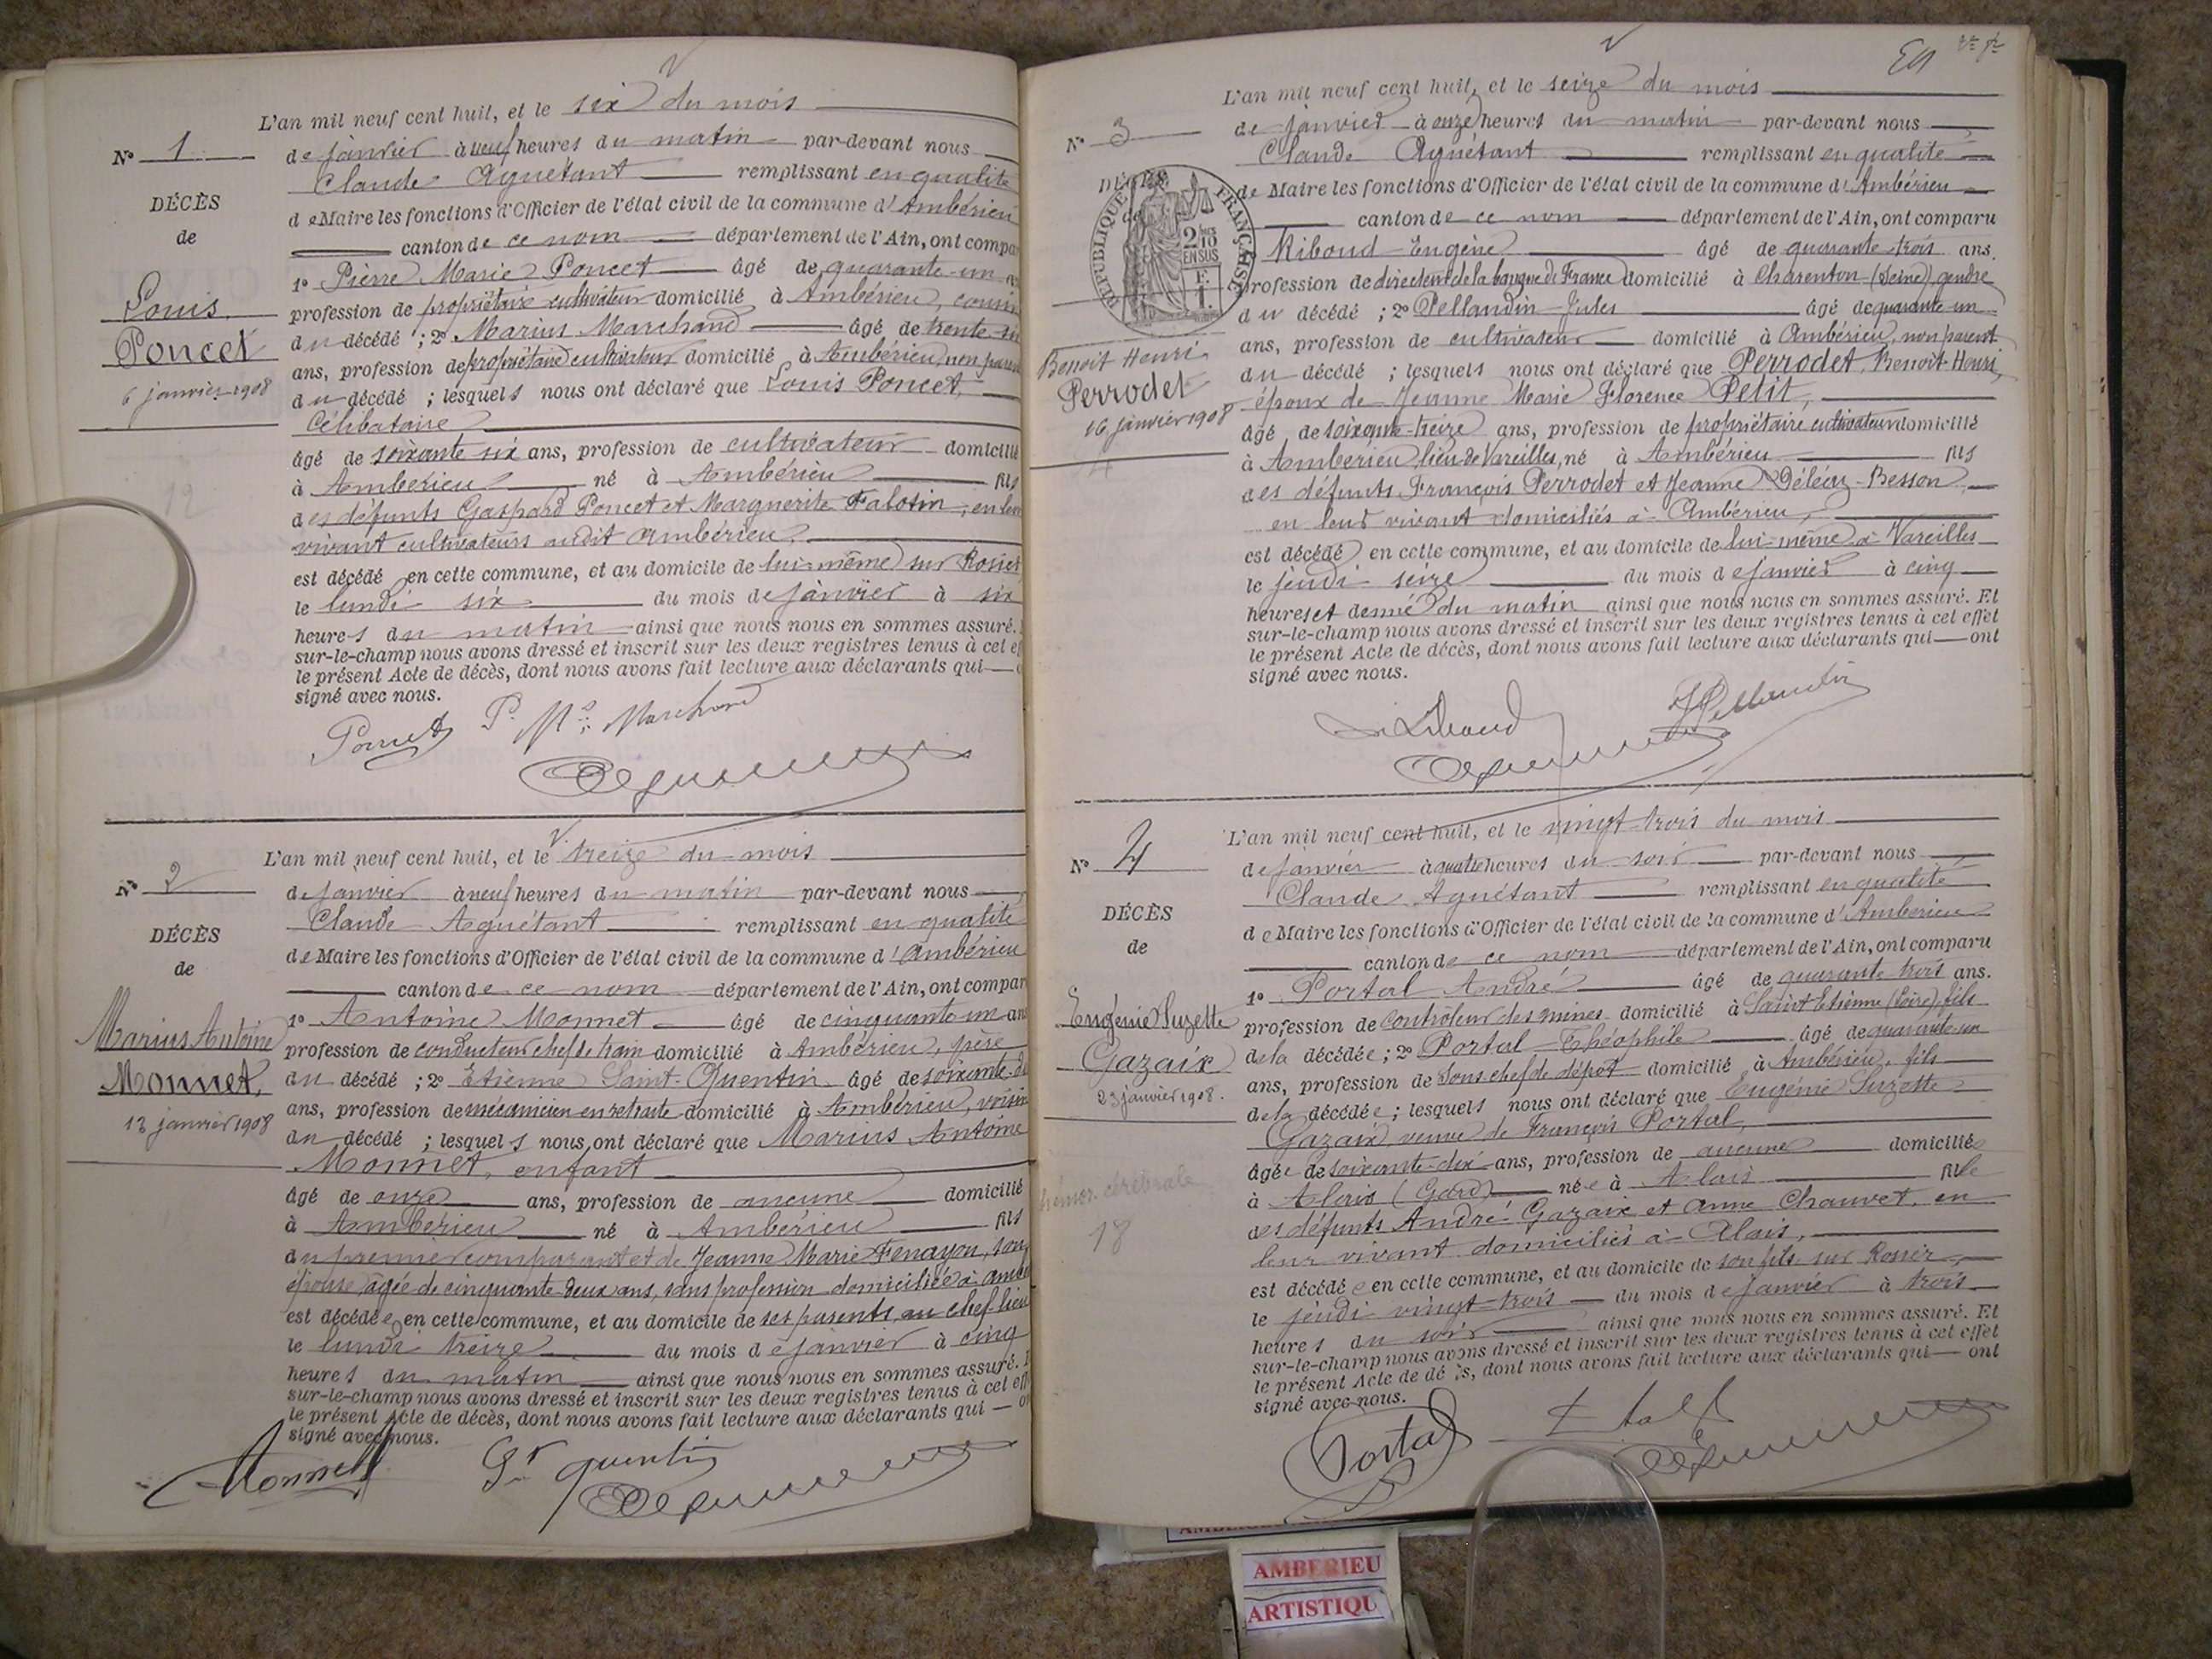 L'an mil neuf cent huit, et le six du mois
N° 1
de janvier à neuf heures du matin par-devant nous
Claude Aguétant remplissant en qualité
DÉCÈS
de Maire les fonctions d'Officier de l'état civil de la commune d'Ambérieu
de
canton de ce nom département de l'Ain, ont compar
1° Pierre Marie Poncet âgé de quarante-un
Louis
Poncet
6 janvier 1908
profession de propriétaire cultivateur domicilié à Ambérieu, cousin
du décédé ; 2° Marius Marchand âgé de trente
ans, profession de propriétaire cultivateur domicilié à Ambérieu, non paren
du décédé ; lesquels nous ont déclaré que Louis Poncet,
Célibataire
âgé de soixante six ans, profession de cultivateur domicilié
à Ambérieu né à Ambérieu fils
des défunts Gaspard Poncet et Marguerite Falotin, en leur
vivant cultivateurs audit Ambérieu,
est décédé en cette commune, et au domicile de lui-même sur Rosier
le lundi six du mois de janvier à six
heures du matin ainsi que nous nous en sommes assuré.
sur-le-champ nous avons dressé et inscrit sur les deux registres tenus à cet ef
le présent Acte de décès, dont nous avons fait lecture aux déclarants qui
signé avec nous.
Poncet P. Ms Marchand
L'an mil neuf cent huit, et le treize du mois
N° 2
de janvier à neuf heures du matin par-devant nous
Claude Aguétant remplissant en qualité
DÉCÈS
de Maire les fonctions d'Officier de l'état civil de la commune d'Ambérieu
de
canton de ce nom département de l'Ain, ont compar
1° Antoine Monnet âgé de cinquante-un an
Marius Antoine
Monnet,
13 janvier 1908
profession de conducteur chef de train domicilié à Ambérieu, père
du décédé ; 2° Etienne Saint-Quentin âgé de soixante-d
ans, profession de mécanicien en retraite domicilié à Ambérieu, voisin
du décédé ; lesquels nous ont déclaré que Marius Antoine
Monnet, enfant
âgé de onze ans, profession de aucune domicilié
à Ambérieu né à Ambérieu fils
du premier comparant et de Jeanne Marie Fenayon, son
épouse, âgée de cinquante-deux ans, sans profession domiciliée à Ambé
est décédé en cette commune, et au domicile de ses parents, au chef-lieu
le lundi treize du mois de janvier à cinq
heures du matin ainsi que nous nous en sommes assuré.
sur-le-champ nous avons dressé et inscrit sur les deux registres tenus à cet eff
le présent Acte de décès, dont nous avons fait lecture aux déclarants qui
signé avec nous.
Monnet St quentin
L'an mil neuf cent huit, et le seize du mois
N° 3
de janvier à onze heures du matin par-devant nous
Claude Aguétant remplissant en qualité
DÉCÈS
de
RÉPUBLIQUE FRANÇAISE
2/10 EN SUS
de Maire les fonctions d'Officier de l'état civil de la commune d'Ambérieu
canton de ce nom département de l'Ain, ont comparu
Riboud Eugène âgé de quarante-trois ans.
profession de directeur de la banque de France domicilié à Charenton (Seine), gendre
du décédé ; 2° Pellaudin Jules âgé de quarante-un
ans, profession de cultivateur domicilié à Ambérieu, non parent
Benoit Henri
Perrodet
16 janvier 1908
du décédé ; lesquels nous ont déclaré que Perrodet Benoit-Henri,
époux de Jeanne Marie Florence Petit,
âgé de soixante-treize ans, profession de propriétaire cultivateur domicilié
à Ambérieu, lieu de Vareilles, né à Ambérieu fils
des défunts François Perrodet et Jeanne Déléaz-Besson
en leur vivant domiciliés à Ambérieu,
est décédé en cette commune, et au domicile de lui-même à Vareilles
le jeudi seize du mois de janvier à cinq
heures et demie du matin ainsi que nous nous en sommes assuré. Et
sur-le-champ nous avons dressé et inscrit sur les deux registres tenus à cet effet
le présent Acte de décès, dont nous avons fait lecture aux déclarants qui ont
signé avec nous.
Riboud JPellaudin
L'an mil neuf cent huit, et le vingt-trois du mois
N° 4
de janvier à quatre heures du soir par-devant nous
Claude Aguétant remplissant en qualité
DÉCÈS
de Maire les fonctions d'Officier de l'état civil de la commune d'Ambérieu
de
canton de ce nom département de l'Ain, ont comparu
1° Portal André âgé de quarante trois ans.
Eugénie Suzette
Gazaix
23 janvier 1908.
profession de contrôleur des mines domicilié à Saint-Etienne (Loire), fils
de la décédée ; 2° Portal Théophile âgé de quarante-un
ans, profession de Sous-chef de dépôt domicilié à Ambérieu, fils
de la décédée ; lesquels nous ont déclaré que Eugénie Suzette
Gazaix veuve de François Portal,
âgée de soixante-dix ans, profession de aucune domiciliée
hémor. cérébrale
18
à Alais (Gard) née à Alais fille
des défunts André Gazaix et Anne Chauvet, en
leur vivant domiciliés à Alais,
est décédée en cette commune, et au domicile de son fils sur Rosier
le jeudi vingt-trois du mois de janvier à trois
heures du soir ainsi que nous nous en sommes assuré. Et
sur-le-champ nous avons dressé et inscrit sur les deux registres tenus à cet effet
le présent Acte de décès, dont nous avons fait lecture aux déclarants qui ont
signé avec nous.
Portal
AMBERIEU
ARTISTIQU